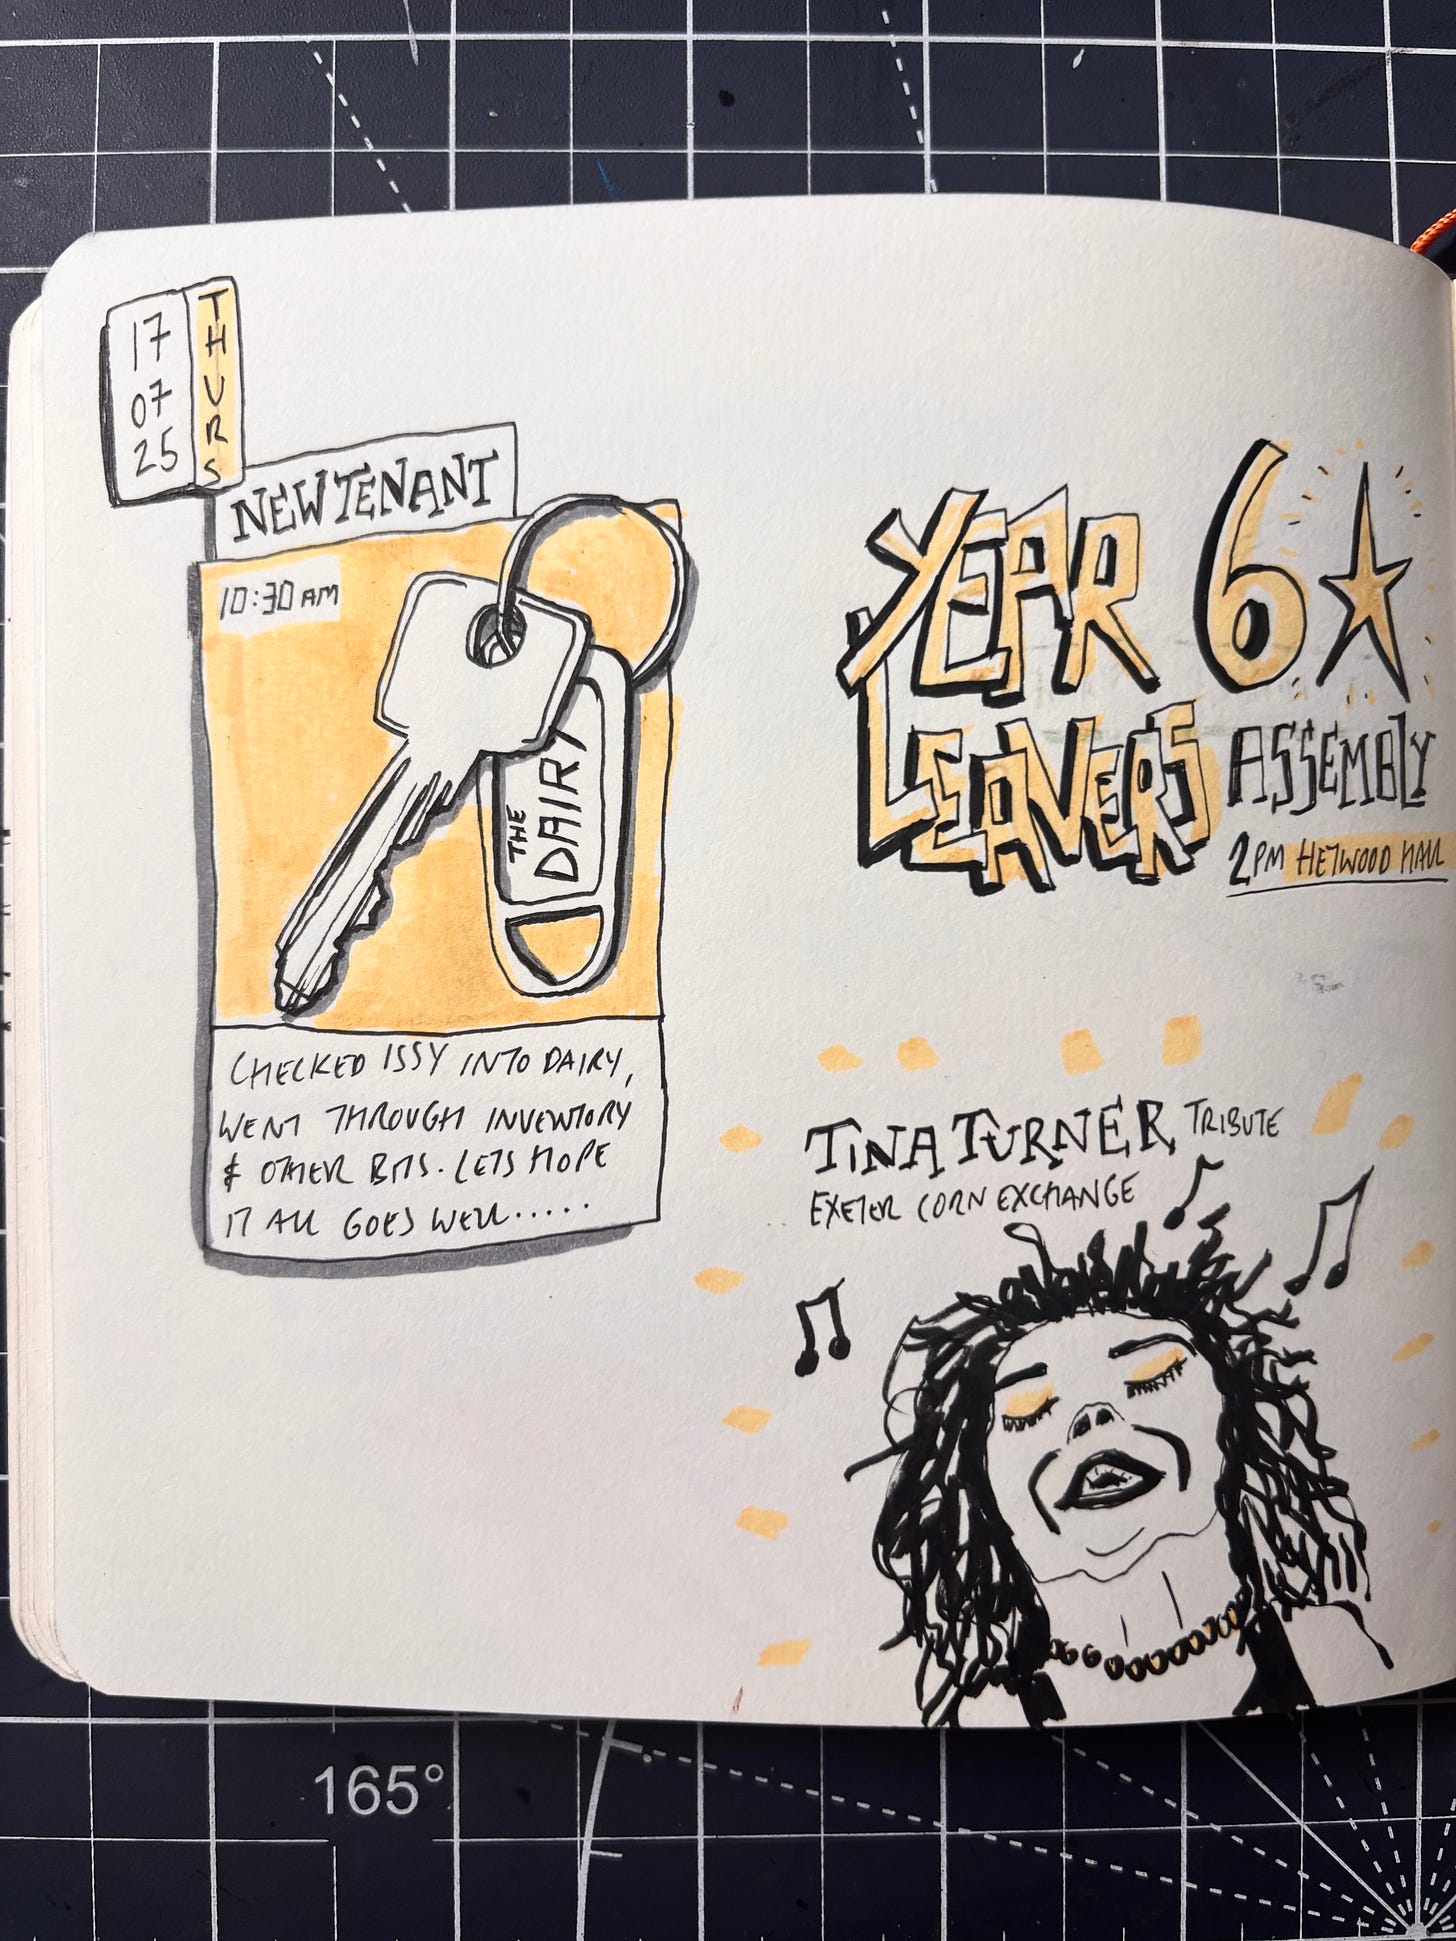 17
07
25
THURS
NEW TENANT
10:30 AM
THE
DAIRY
CHECKED ISSY INTO DAIRY,
WENT THROUGH INVENTORY
& OTHER BITS. LETS HOPE
IT ALL GOES WELL.....
YEAR 6
LEAVERS ASSEMBLY
2PM HEYWOOD HALL
TINA TURNER TRIBUTE
EXETER CORN EXCHANGE
165°